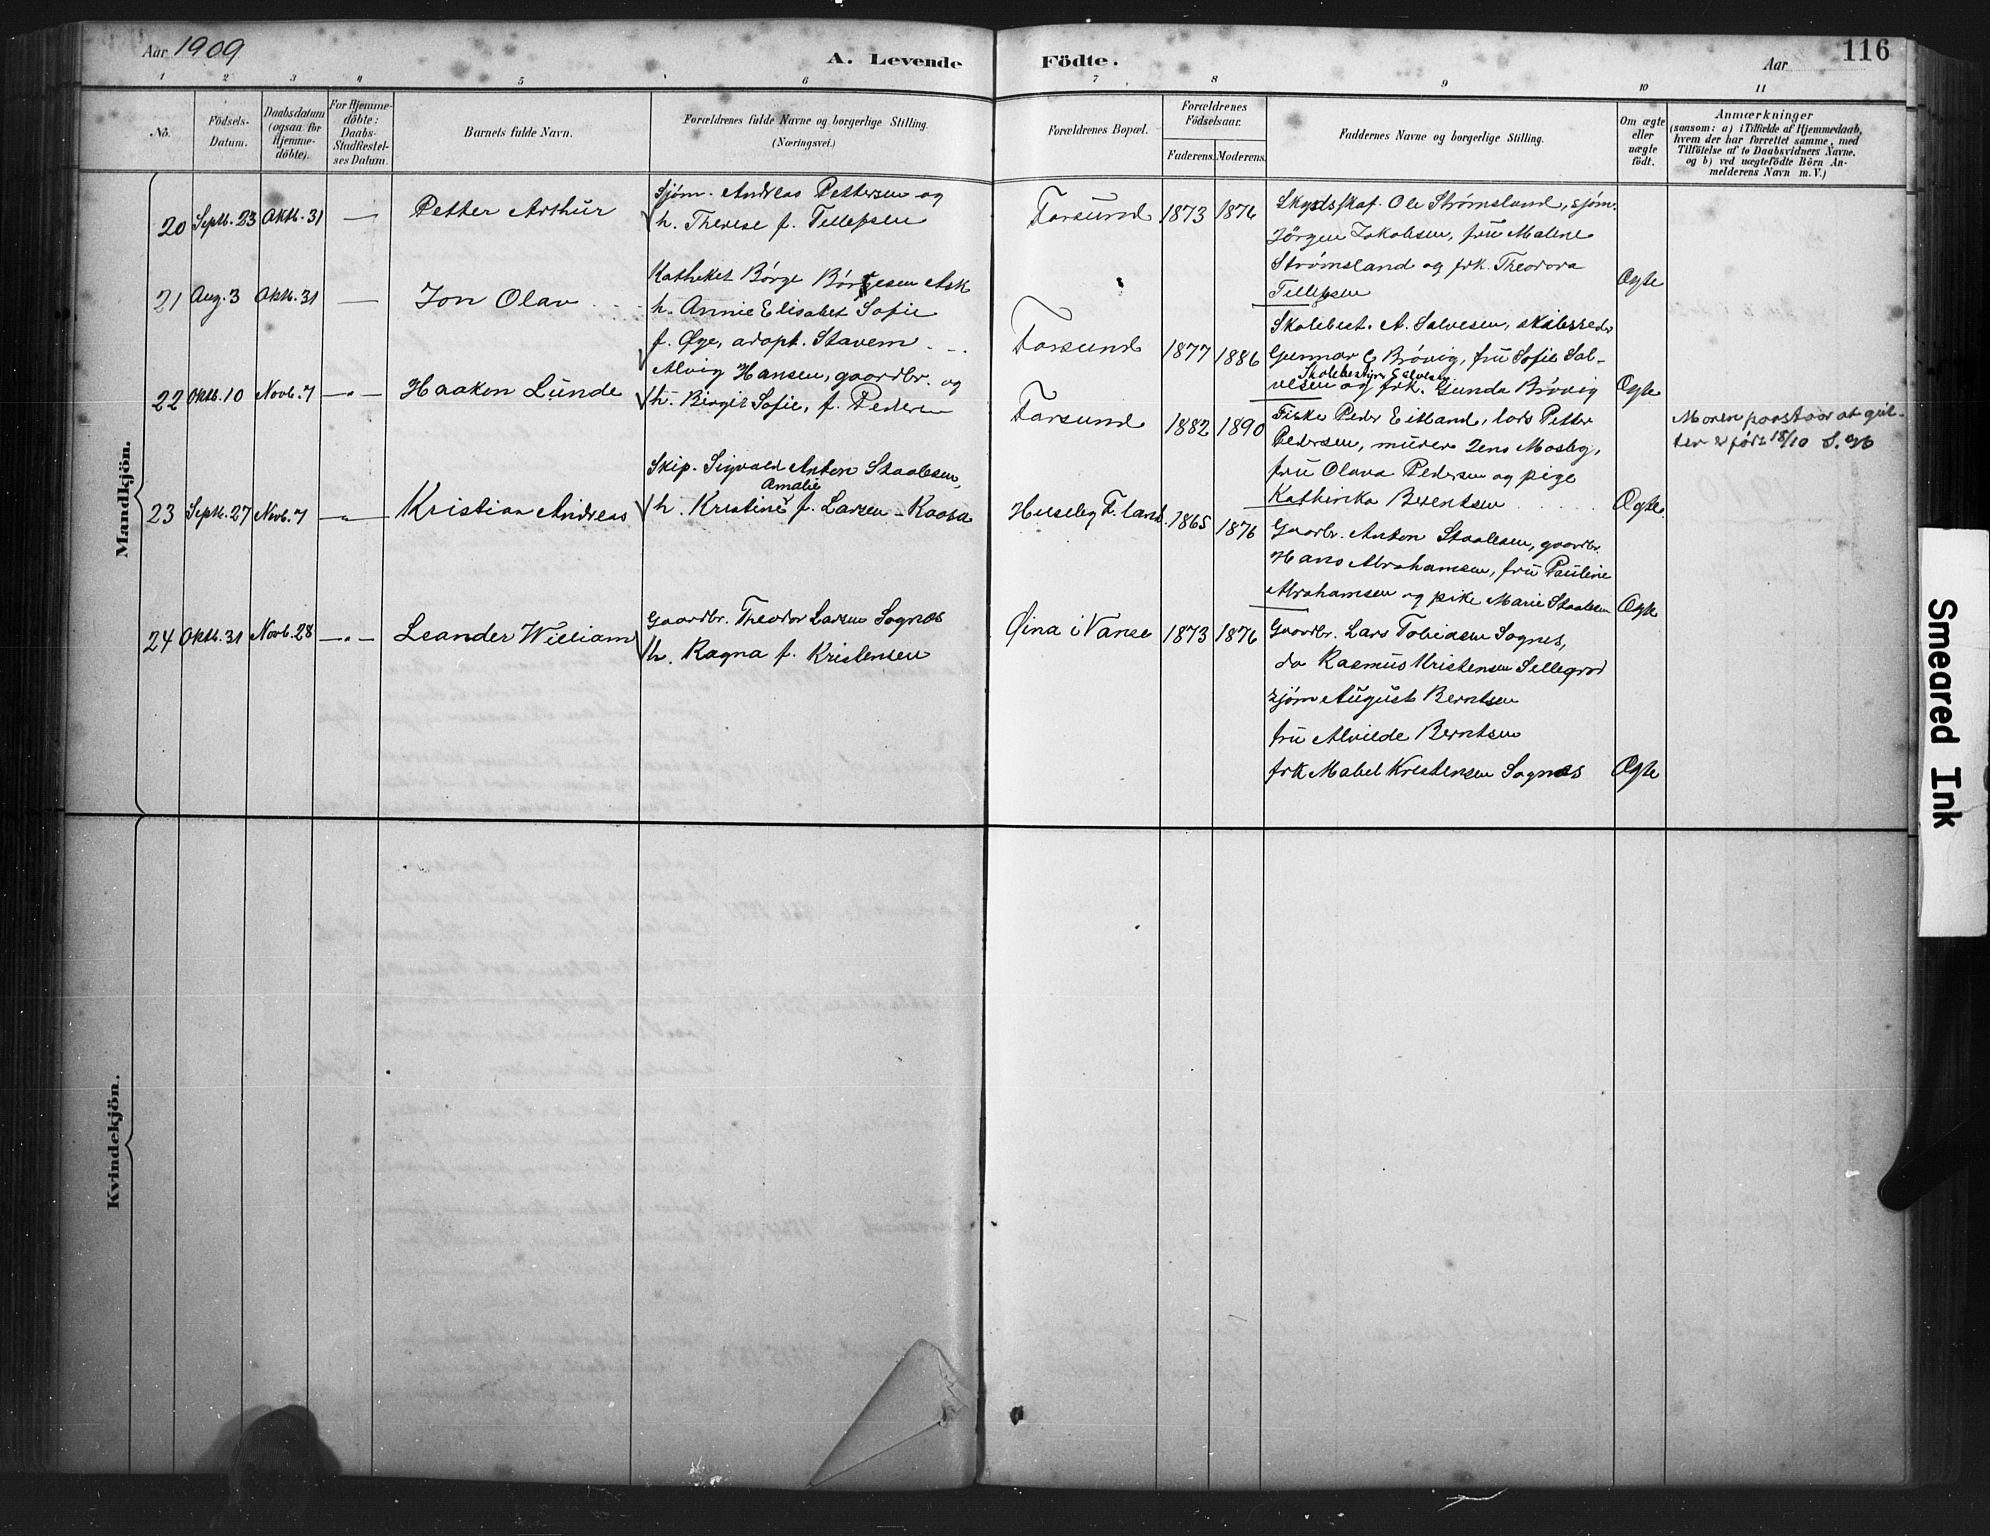 Aar 1909
A. Levende Födte.
Aar
116
1 2 3 4 5 6 7 8 9 10 11
No.
Födsels-Datum.
Daabsdatum (ogsaa for Hjemme-döbte).
For Hjemme-döbte: Daabs-Stadfæstel-ses Datum.
Barnets fulde Navn.
Forældrenes fulde Navne og borgerlige Stilling. (Næringsvei.)
Forældrenes Bopæl.
Forældrenes Födselsaar.
Faderens. Moderens.
Faddernes Navne og borgerlige Stilling.
Om ægte eller uægte födt.
Anmærkninger
(saasom: a) i Tilfælde af Hjemmedaab,
hvem der har forrettet samme, med
Tilföielse af to Daabsvidners Navne.
og b) ved uægtefödte Börn An-
melderens Navn m. V.)
Mandkjön.
20 Septb. 23 Oktb. 31 — Petter Arthur
Sjøm. Andreas Pettersen og
h. Therese f. Tellefsen
Farsund 1873 1876
Skydsskaf. Ole Strømsland, sjøm.
Jörgen Jakobsen, fru Malene
Strømsland og frk. Theodora
Tellefsen
Ægte
21 Aug. 3 Oktb. 31 — Jon Olav
Katheket Børge Børgesen Ask
h. Annie Elisabet Sofie
f. Øye, adopt. Stavem
Farsund 1877 1886
Skolebest. A. Salvesen, skibsreder
Gunnar C Brøvig, fru Sofie Sal-
Skolebestyrer Salvesen
vesen og frk. Gunda Brøvig
Ægte
22 Oktb. 10 Novb. 7 —"— Haakon Lunde
Alvig Hansen, gaardbr. og
h. Birgit Sofie, f. Pedersen
Farsund 1882 1890
Fiske Peder Eitland, lods Petter
Pedersen, murer Jens Mosby,
fru Olava Pedersen og pige
Kathinka Berentsen
Ægte.
Moren paastaar at gut-
ten er født 18/10
23 Septb. 27 Novb. 7 —"— Kristian Andreas
Skip. Sigvald Anton Staalesen,
Amalie
h. Kristine f. Larsen - Kaasa
Huseby F. land. 1865 1876
Gaardbr. Anton Staalesen, gaardbr.
Hans Abrahamsen, fru Pauline
Abrahamsen og pike Marie Staalesen
Ægte
24 Oktb. 31 Novb. 28 —"— Leander William
Gaardbr. Theodor Larsen Sognes
h. Ragna f. Kristensen
Øina i Vanse 1873 1876
Gaardbr. Lars Tobiasen Sognes,
do Rasmus Kristensen Sellegrod
sjøm August Berntsen
fru Alvilde Berntsen
frk Mabel Kristensen Sognes
Ægte
Kvindekjön.
Smeared Ink